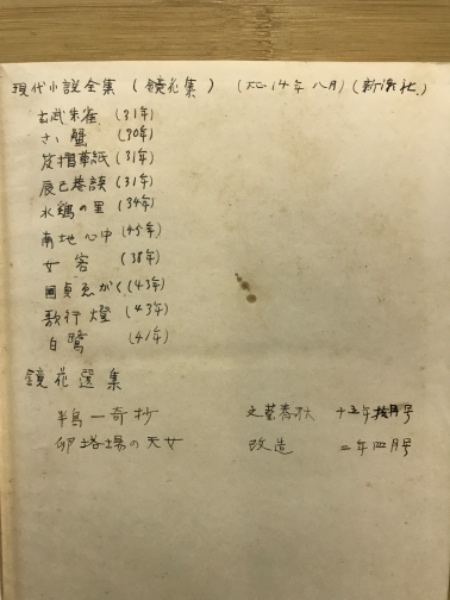 現代小説全集(鏡花集) (大正14年八月)(新潮社.)
玄武朱雀 (31年)
さゝ蟹 (30年)
笈摺草紙 (31年)
辰巳巷談 (31年)
水鶏の里 (34年)
南地心中 (45年)
女客 (38年)
国貞ゑがく (43年)
歌行燈 (43年)
白鷺 (41年)
鏡花選集
半島一奇抄 文藝春秋 十五年拾月号
卵塔場の天女 改造 二年四月号